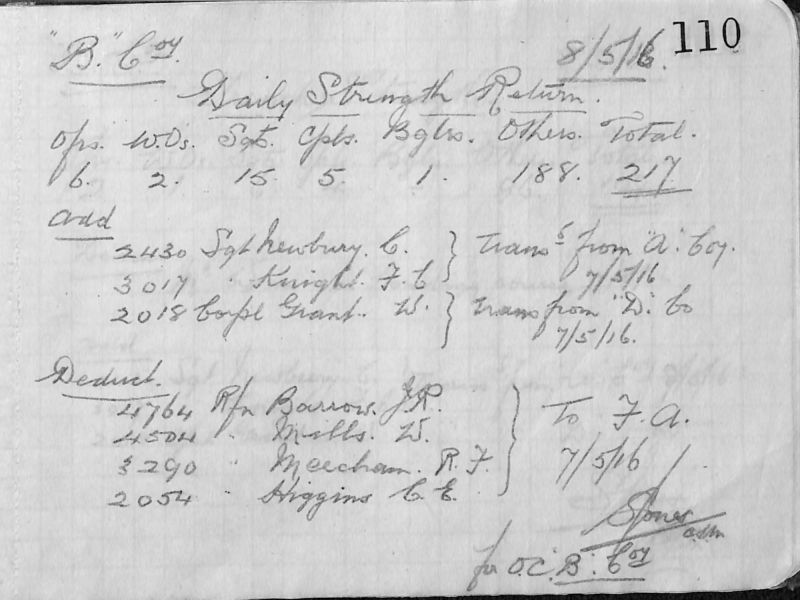 110
"B." Coy. 8/5/16.
Daily Strength Return.
Ofrs. W.Os. Sgts. Cpls. Bglrs. Others. Total.
6. 2. 15. 5. 1. 188. 217
Add
2430 Sgt Newbury. C. } Transf from "A" Coy.
3017 " Knight. F. C } 7/5/16
2018 Corpl Grant. W. } Trans from "D" Co
7/5/16.
Deduct.
4764 Rfn Barrow. J.R. } To F.A.
4504 " Mills. W.
3290 " Meecham. R.F. 7/5/16
2054 " Higgins C.E.
SJones
CSM
for O.C. "B". Coy